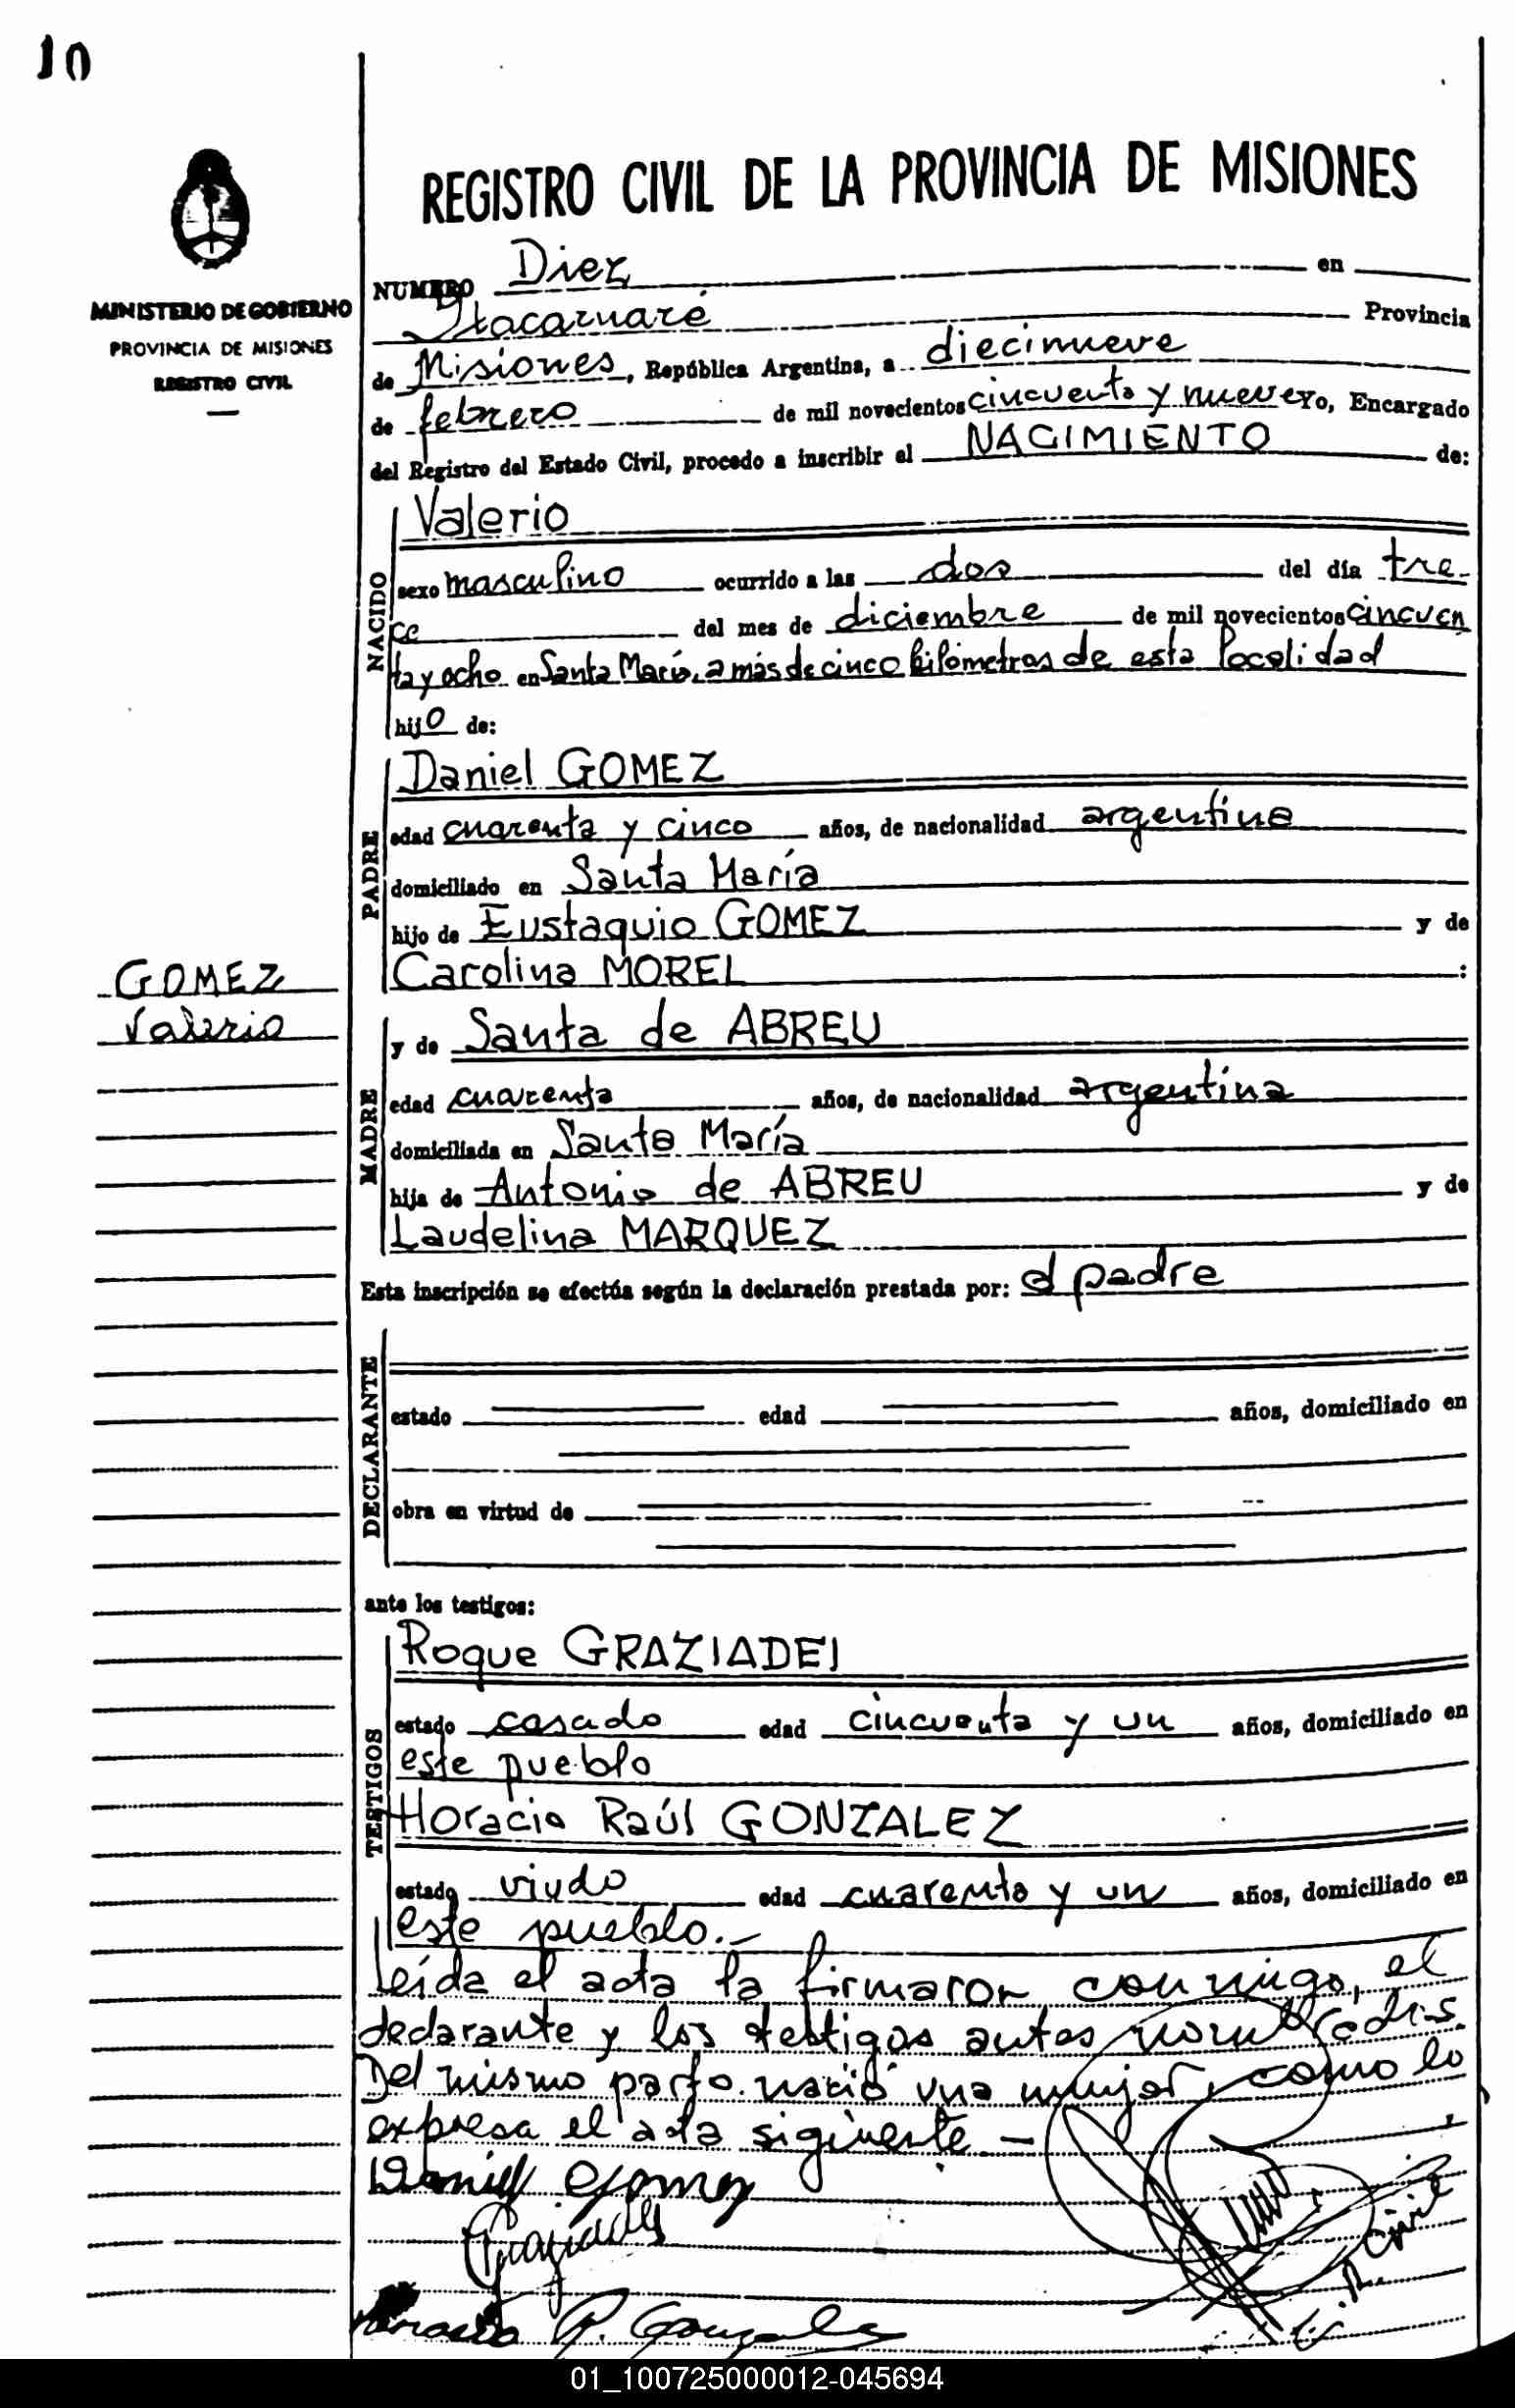 10
MINISTERIO DE GOBIERNO
PROVINCIA DE MISIONES
REGISTRO CIVIL
REGISTRO CIVIL DE LA PROVINCIA DE MISIONES
NUMERO Diez en
Itacaruaré Provincia
de Misiones, República Argentina, a diecinueve
de febrero de mil novecientos cincuenta y nueve Yo, Encargado
del Registro del Estado Civil, procedo a inscribir el NACIMIENTO de:
NACIDO
Valerio
sexo masculino ocurrido a las dos del día tre-
ce del mes de diciembre de mil novecientos cincuen
ta y ocho en Santa María, a más de cinco kilómetros de esta localidad
hijo de:
PADRE
Daniel GOMEZ
edad cuarenta y cinco años, de nacionalidad argentina
domiciliado en Santa María
hijo de Eustaquio GOMEZ y de
Carolina MOREL :
GOMEZ
Valerio
MADRE
y de Santa de ABREU
edad cuarenta años, de nacionalidad argentina
domiciliada en Santa María
hija de Antonio de ABREU y de
Laudelina MARQUEZ
Esta inscripción se efectúa según la declaración prestada por: el padre
DECLARANTE
estado edad años, domiciliado en
obra en virtud de
ante los testigos:
TESTIGOS
Roque GRAZIADEI
estado casado edad cincuenta y un años, domiciliado en
este pueblo
Horacio Raúl GONZALEZ
estado viudo edad cuarenta y un años, domiciliado en
este pueblo.-
Leída el acta la firmaron conmigo, el
declarante y los testigos antes nombrados.
Del mismo parto nació una mujer, como lo
expresa el acta sigiuente -
Daniel Gomez
Graziadei
Horacio R. Gonzalez
E. R. Civil
01_100725000012-045694